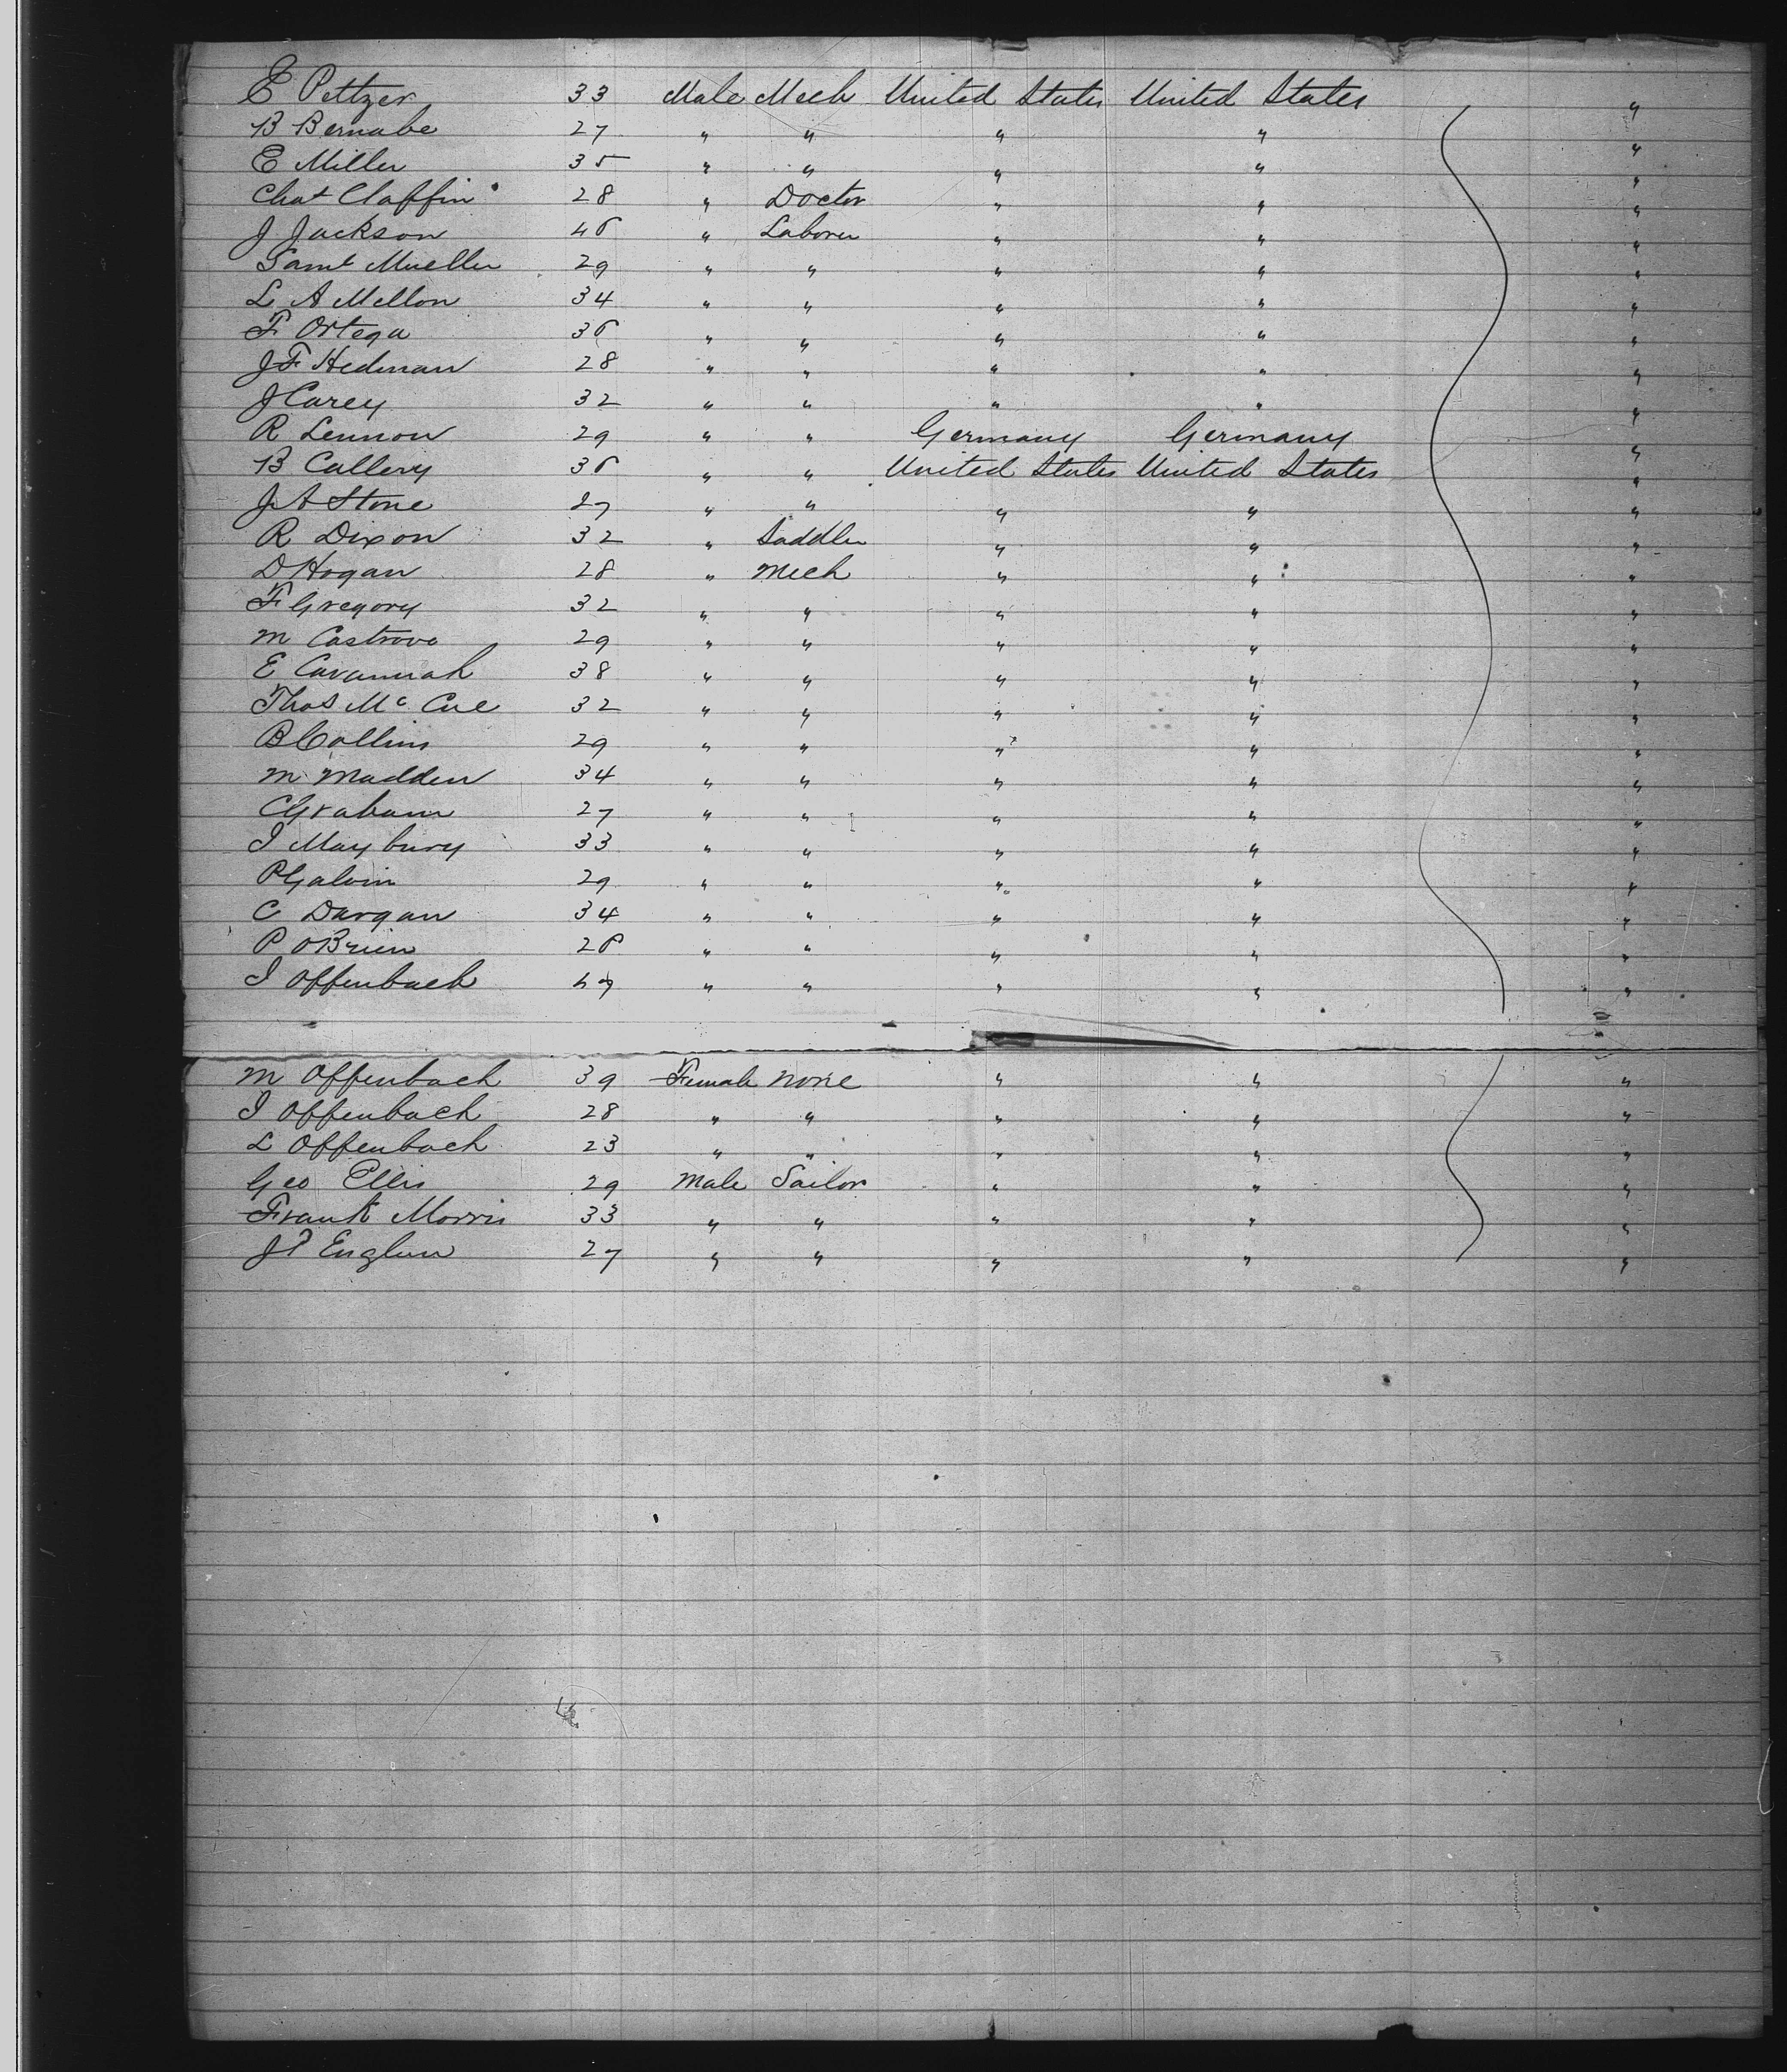 E Peltzer 33 Male Mech United States United States "
B Bernabe 27 " " " " "
E Miller 35 " " " " "
Chas Claffin 28 " Doctor " " "
J Jackson 46 " Laborer " " "
Saml Mueller 29 " " " " "
L A Mellon 34 " " " " "
F Ortega 36 " " " " "
J F Hedman 28 " " " " "
J Carey 32 " " " " "
R Lennon 29 " " Germany Germany "
B Callery 36 " " United States United States "
J A Stone 27 " " " " "
R Dixon 32 " Saddler " " "
D Hogan 28 " Mech " " "
F Gregory 32 " " " " "
M Castrovo 29 " " " " "
E Cavannah 38 " " " " "
Thos McCue 32 " " " " "
B Collins 29 " " " " "
M Madden 34 " " " " "
C Graham 27 " " " " "
I Maybury 33 " " " " "
P Galvin 29 " " " " "
C Dargan 34 " " " " "
P OBrien 26 " " " " "
I Offenbach 49 " " " " "
M Offenbach 39 Female None " " "
I Offenbach 28 " " " " "
L Offenbach 23 " " " " "
Geo Ellis 29 Male Sailor " " "
Frank Morris 33 " " " " "
J P Englun 27 " " " " "